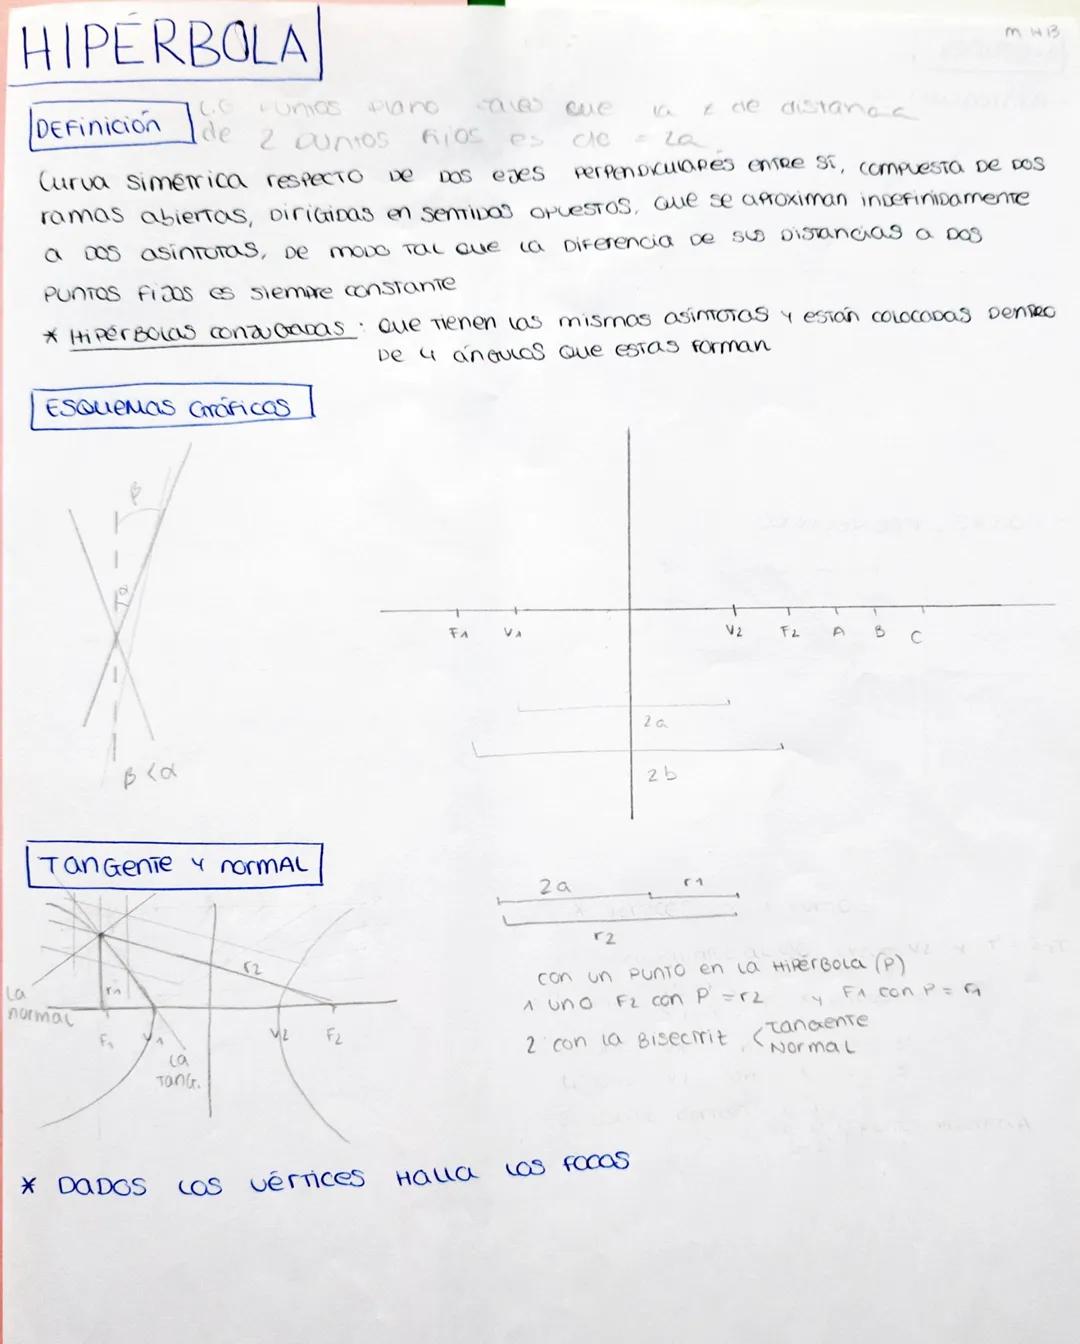 HIPÉRBOLA
M HB
DEFinición
L.G puntos plano tales que la ± de distancia
de 2 puntos fijos es cte = 2a
Curva simétrica respecto de dos ejes perpendiculares entre sí, compuesta de dos
ramas abiertas, dirigidas en sentidos opuestos, que se aproximan indefinidamente
a dos asíntotas, de modo tal que la diferencia de sus distancias a dos
puntos fijos es siempre constante
* Hipérbolas conjugadas : que tienen las mismas asíntotas y están colocadas dentro
de 4 ángulos que estas forman
ESQUEMAS Gráficos
β
α
β < α
F1 V1 V2 F2 A B C
2a
2b
Tangente y normal
r2
r1
La
normal
F1 V1 V2 F2
La
Tang.
2a r1
r2
con un punto en la Hipérbola (P)
1 uno F2 con P = r2 y F1 con P = r1
2 con la Bisectriz < Tangente
Normal
* DADOS LOS VÉRTICES HALLA LOS FOCOS